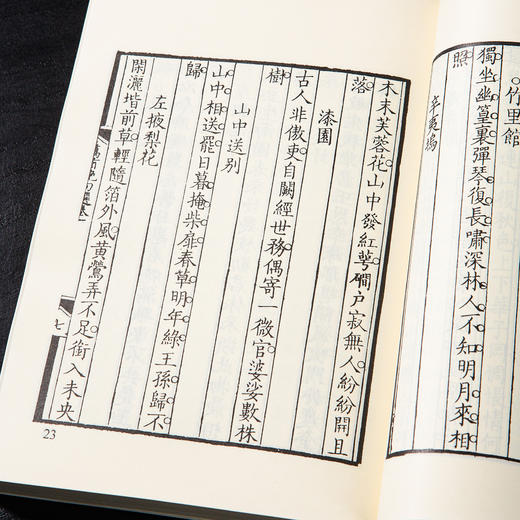 竹里館
獨坐幽篁裏彈琴復長嘯深林人不知明月來相
照
辛夷塢
木末芙蓉花山中發紅萼磵戶寂無人紛紛開且
落
漆園
古人非傲吏自闕經世務偶寄一微官婆娑數株
樹
山中送別
山中相送罷日暮掩柴扉春草明年綠王孫歸不
歸
左掖梨花
閑灑堦前草輕隨箔外風黃鶯弄不足銜入未央
七
23